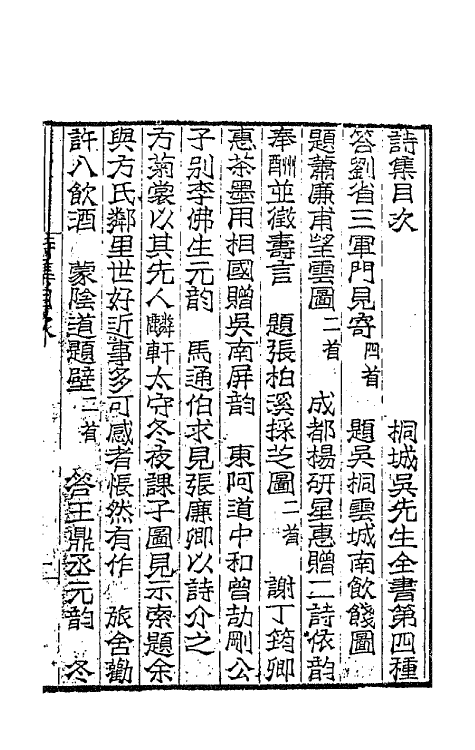 詩集目次　桐城吳先生全書第四種
答劉省三軍門見寄四首　題吳桐雲城南飲餞圖
題蕭廉甫望雲圖二首　成都楊研星惠贈二詩依韵
奉酬並徵壽言　題張柏溪採芝圖二首　謝丁筠卿
惠茶墨用相國贈吳南屏韵　東阿道中和曾劼剛公
子別李佛生元韵　馬通伯求見張廉卿以詩介之
方菊裳以其先人麟軒太守冬夜課子圖見示索題余
與方氏鄰里世好近事多可感者悵然有作　旅舍勸
許八飲酒　蒙陰道題壁二首　答王鼎丞元韵　冬
詩集目次